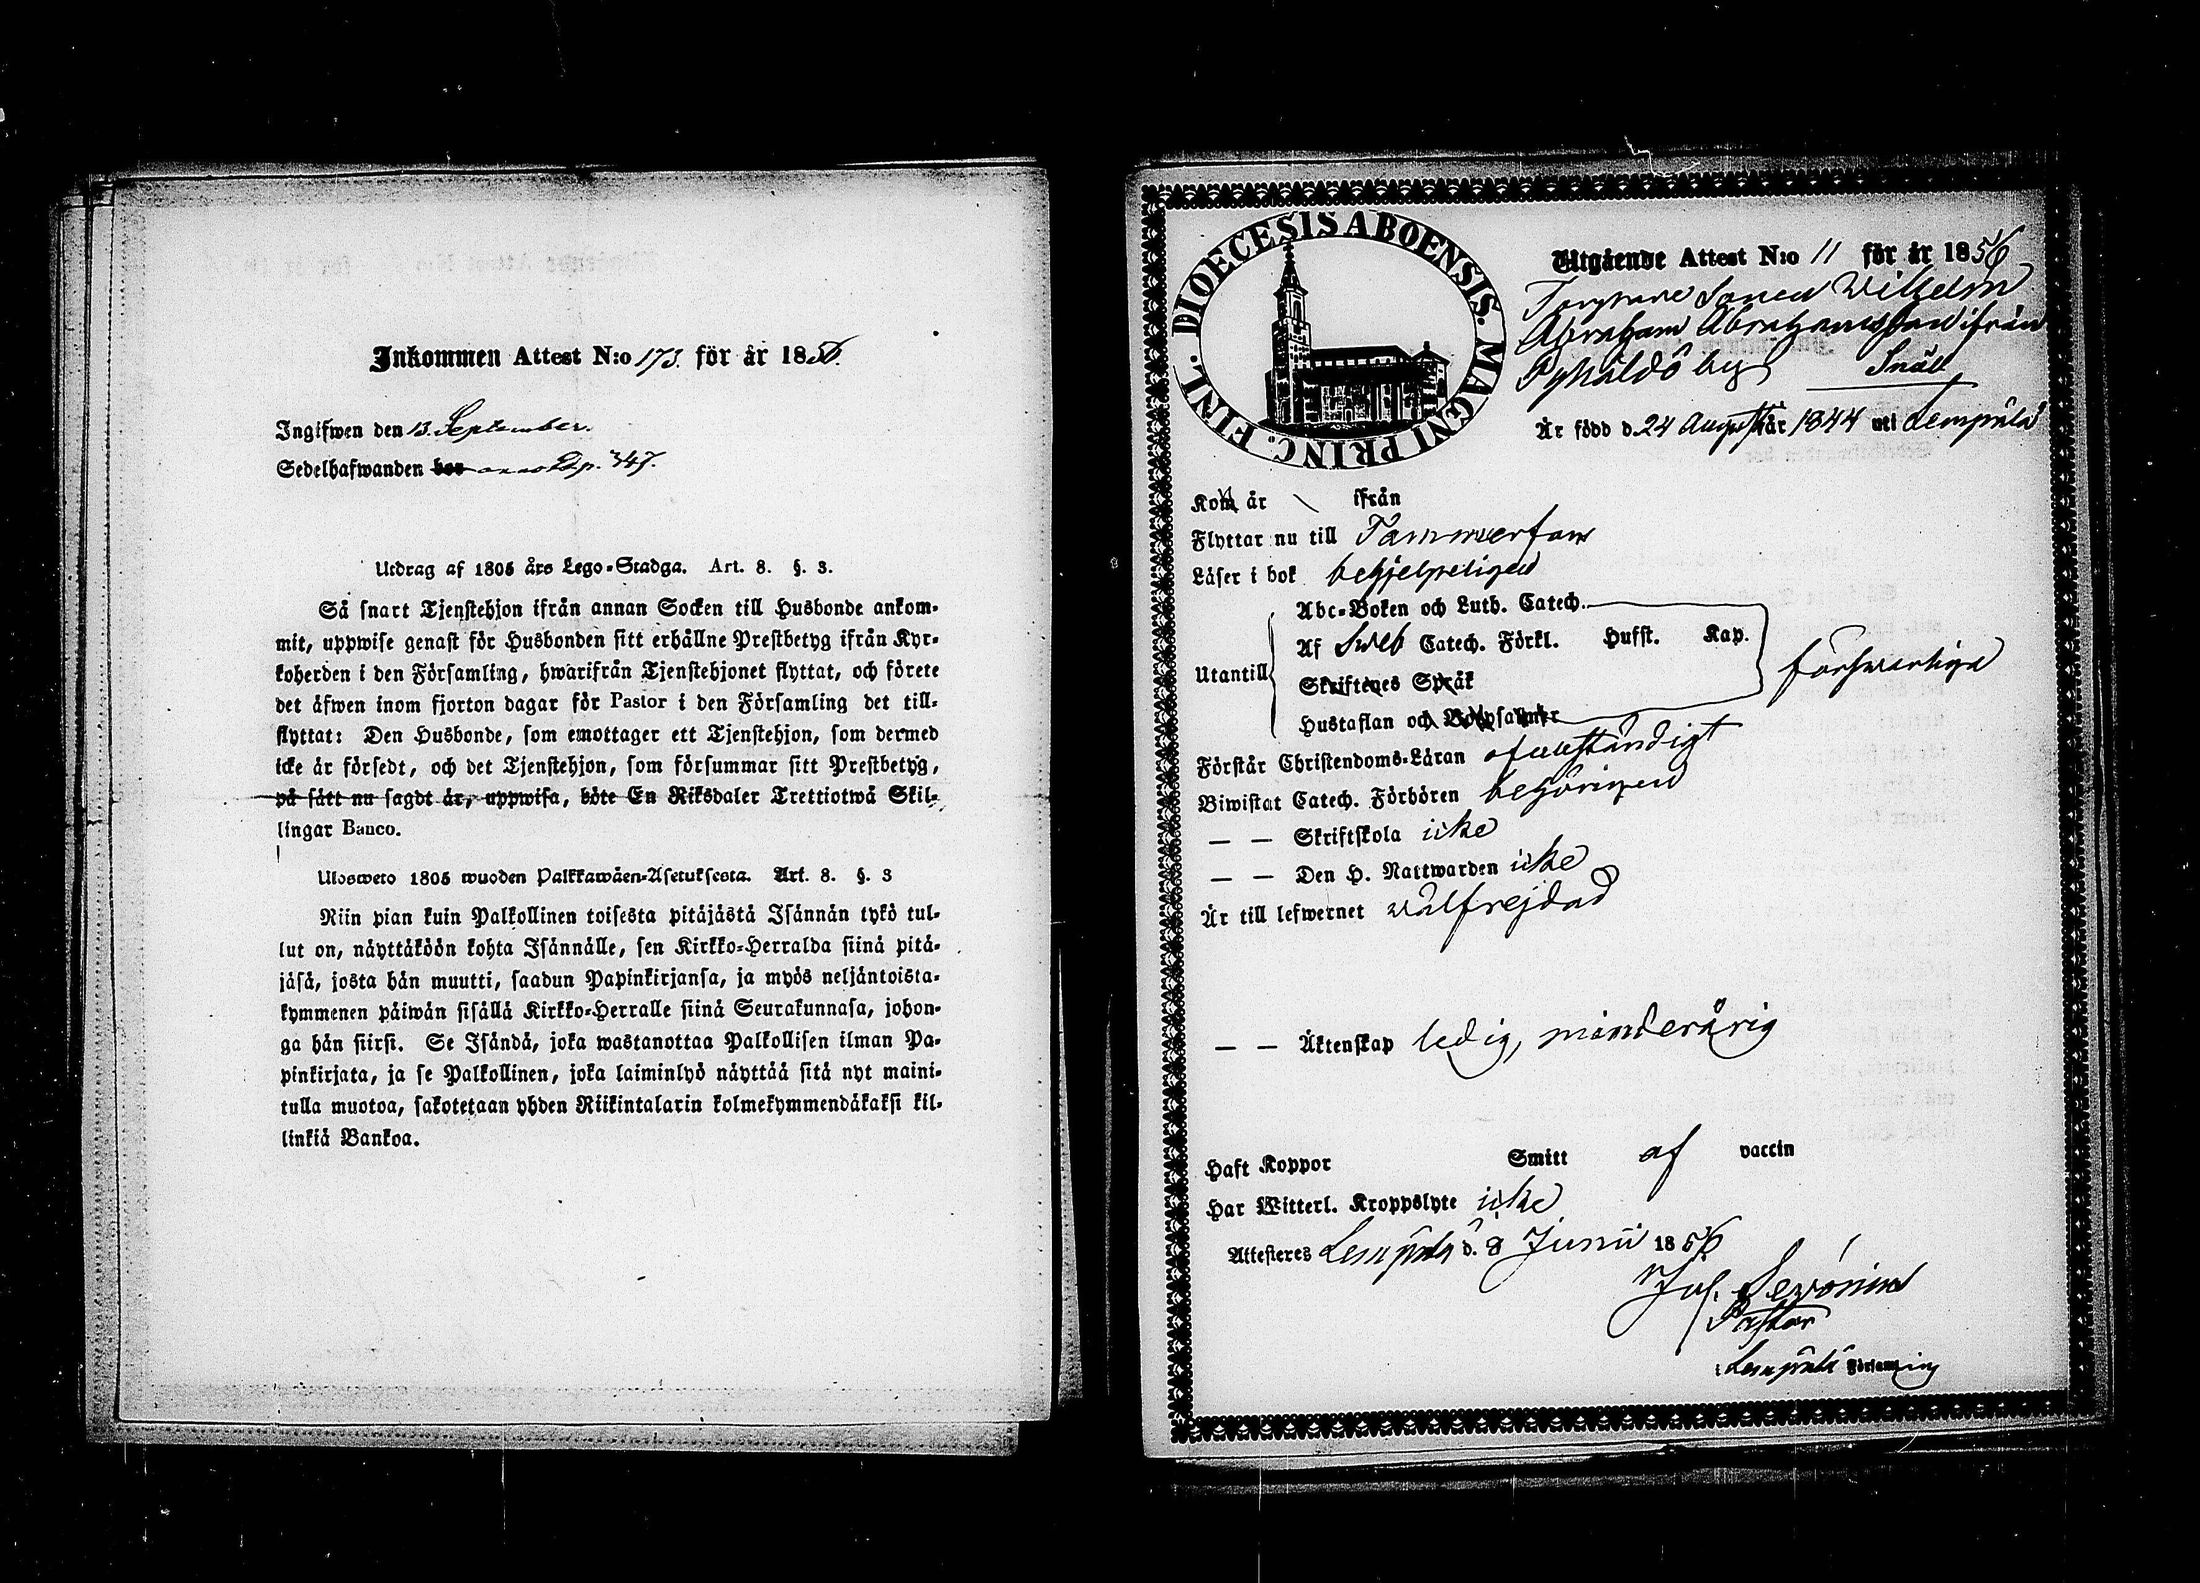 Inkommen Attest N:o 173. för år 1856.
Ingifwen den 13. September.
Sedelhafwanden bor anno Dp. 347.
Utdrag af 1805 års Lego-Stadga. Art. 8. §. 3.
Så snart Tjenstehjon ifrån annan Socken till Husbonde ankom-
mit, uppwise genast för Husbonden sitt erhållne Prestbetyg ifrån Kyr-
koherden i den Församling, hwarifrån Tjenstehjonet flyttat, och förete
det äfwen inom fjorton dagar för Pastor i den Församling det till-
flyttat: Den Husbonde, som emottager ett Tjenstehjon, som dermed
icke är försedt, och det Tjenstehjon, som försummar sitt Prestbetyg,
på sätt nu sagdt är, uppwisa, böte En Riksdaler Trettiotwå Skil-
lingar Banco.
Ulosweto 1805 wuoden Palkkawäen-Asetuksesta. Art. 8. §. 3
Niin pian kuin Palkollinen toisesta pitäjästä Isännän tykö tul-
lut on, näyttäköön kohta Isännälle, sen Kirkko-Herralda siinä pitä-
jäsä, josta hän muutti, saadun Papinkirjansa, ja myös neljäntoista-
kymmenen päiwän sisällä Kirkko-Herralle siinä Seurakunnasa, johon-
ga hän siirsi. Se Isändä, joka wastanottaa Palkollisen ilman Pa-
pinkirjata, ja se Palkollinen, joka laiminlyö näyttää sitä nyt maini-
tulla muotoa, sakotetaan yhden Riikintalarin kolmekymmendäkaksi kil-
linkiä Bankoa.
DIOECESIS ABOENSIS. MAGNI PRINC. FINL.
Utgående Attest N:o 11 för år 1856
Torpare Sonen Wilhelm
Abraham Abrahamsson ifrån
Pyhäldö by Snäll
Är född d. 24 August år 1844 uti Lempälä
Kom år ifrån
Flyttar nu till Tammerfors
Läser i bok behjelpeligen
Abc-Boken och Luth. Catech.
Af Sweb Catech. Förkl. Husst. Kap.
Utantill Skriftenes Språk försvarliga
Hustaflan och Botpsalmer
Förstår Christendoms-Läran ofullständigt
Biwistat Catech. Förhören behörigen
— — Skriftskola icke
— — Den H. Nattwarden icke
Är till lefwernet wälfrejdad
— — Äktenskap ledig, minderårig
Haft Koppor Smitt af vaccin
Har Witterl. Kroppslyte icke
Attesteres Lempälä d. 8 Junii 1856
Jos. Sevónius
Pastor
i Lempälä Församling